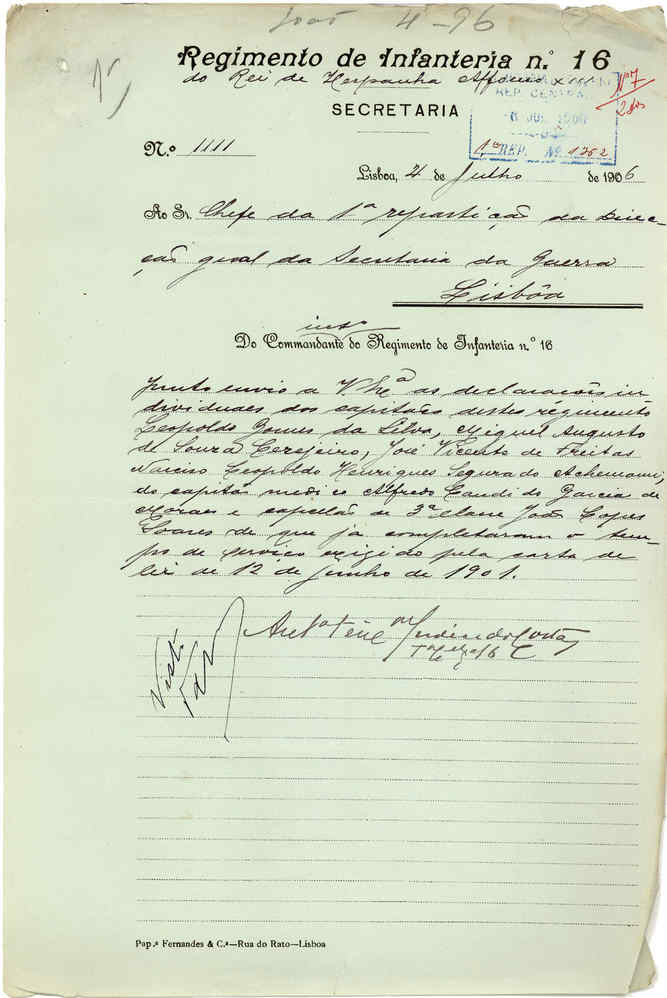 João 4-96
Regimento de Infanteria n.º 16
do Rei de Hespanha Affonso XIII
Nº7
REP. CENTRAL
2 dos
SECRETARIA
JUL. 1906
N.º 1111
1ª REP. Nº 1352
Lisboa, 4 de Julho de 1906
Ao Sr. Chefe da 1ª repartição da Direc-
ção geral da Secretaria da Guerra
Lisbôa
intº
Do Commandante do Regimento de Infanteria n.º 16
Junto envio a V. Exª as declarações in-
dividuaes dos capitães deste regimento
Leopoldo Gomes da Silva, Miguel Augusto
de Souza Cerejeiro, José Vicente de Freitas
Narciso Leopoldo Henriques Segurado Achemann,
do capitão medico Alfredo Candido Garcia de
Moraes e capellão de 3ª classe João Lopes
Soares de que já completaram o tem-
po de serviço exigido pela carta de
lei de 12 de Junho de 1901.
Visto
Pap.ª Fernandes & C.ª—Rua do Rato—Lisboa